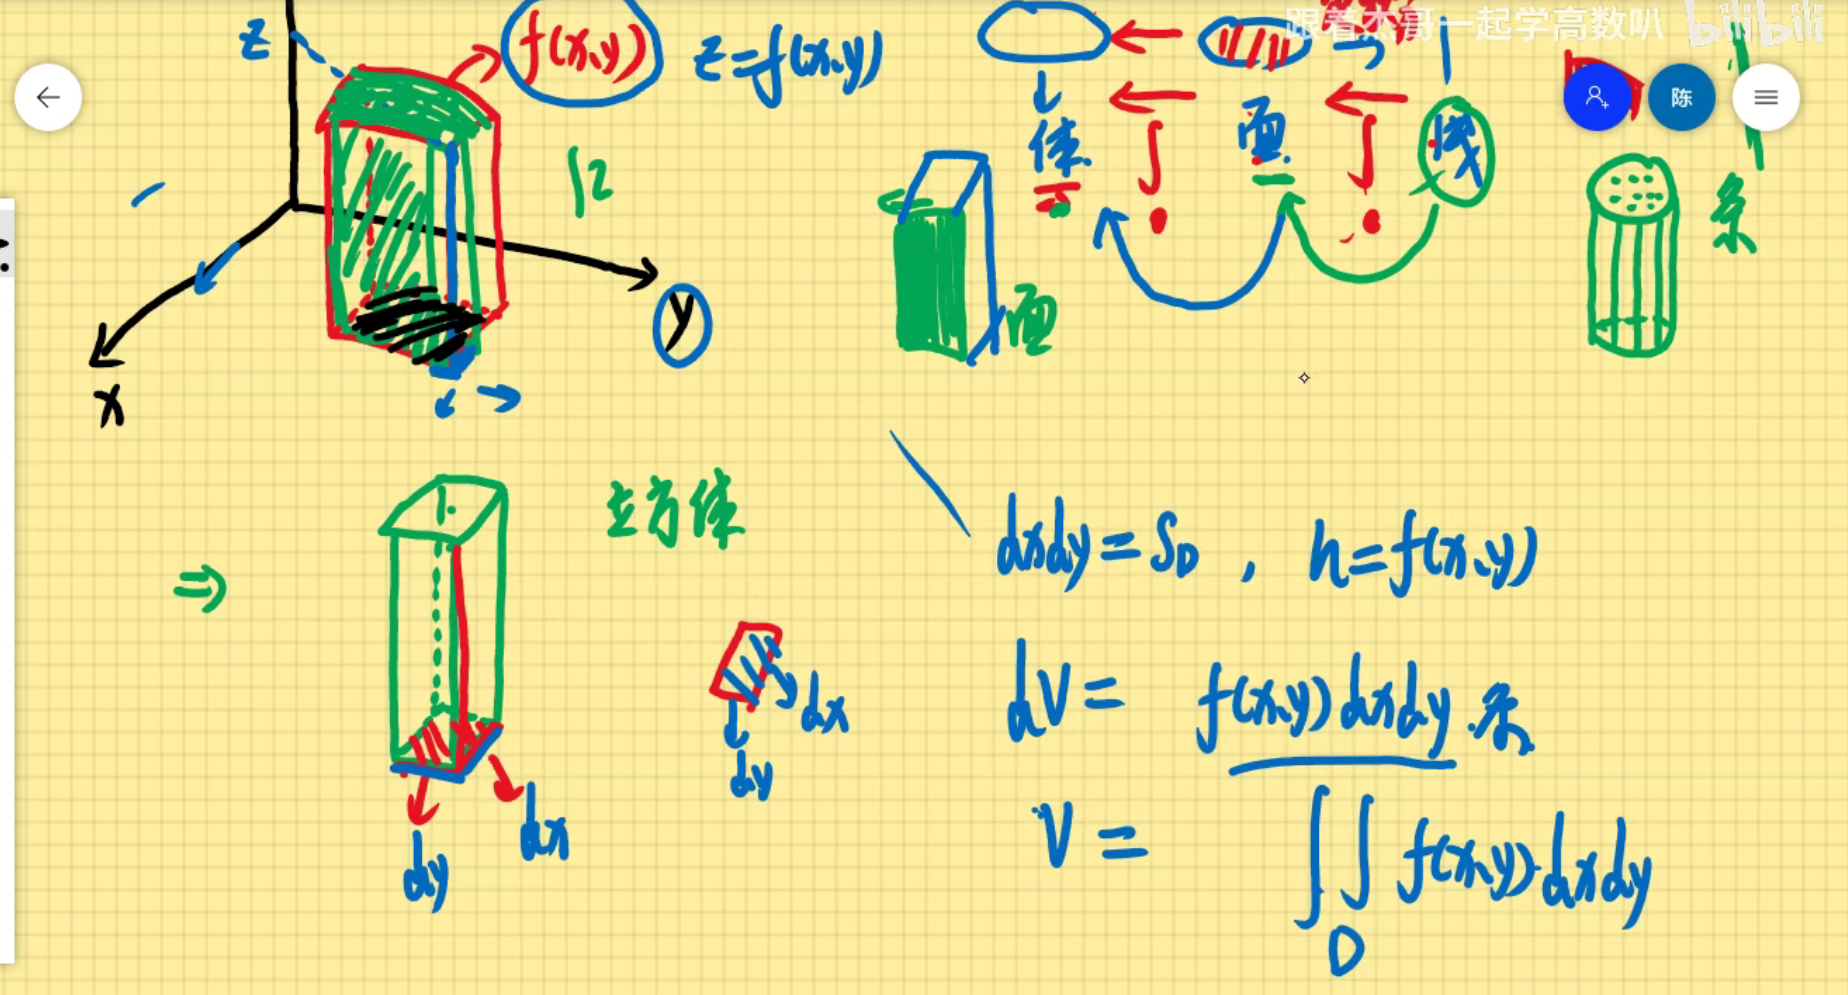 跟着杰哥一起学高数叭 bilibili
z
f(x,y)
z=f(x,y)
陈
体
∫
面
∫
线
条
12
面
y
x
立方体
dxdy=S_D , h=f(x,y)
dV= f(x,y)dxdy.条
dx
dy
V= ∬ f(x,y)·dxdy
D
dx
dy